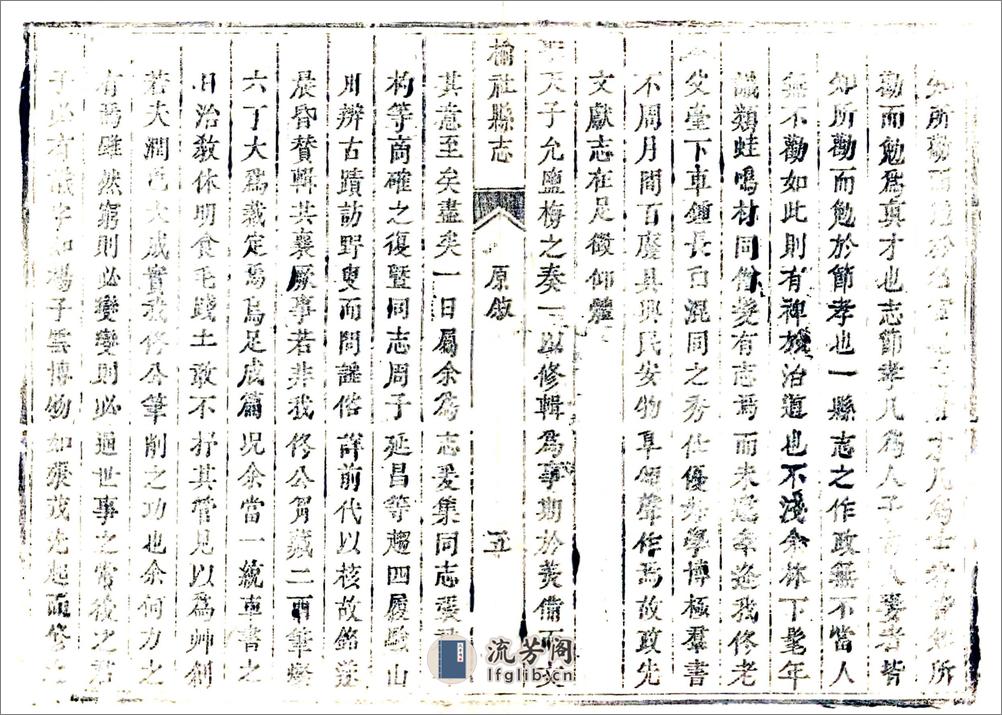 知所勸而勉於治才凡爲士者皆知所
勸而勉爲眞才也志節孝凡爲人子妻者皆
知所勸而勉於節孝也一縣志之作政無不當人
無不勸如此則有裨於治道也不淺余林下耄年
識類蛙鳴材同借髮有志焉而未逮幸逢我佟老
父臺下車鍾長白混同之秀仕優於學博極羣書
不周月間百廢具興民安物阜頌聲作焉故政先
文獻志在足徵仰體
天子允鹽梅之奏一以修輯爲事期於美備而
榆社縣志
原敘
五
其意至矣盡矣一日屬余爲志爰集同志張
杓等商確之復暨同志周子延昌等趨四履驗山
川辨古蹟訪野叟而問謠俗辭前代以核故銘
晨昏賛輯共襄厥事若非我佟公胷藏二酉筆燦
六丁大爲裁定焉烏足成篇况余當一統車書之
日治敎休明食毛踐土敢不抒其管見以爲艸創
若夫潤色大成實我佟公筆削之功也余何力之
有焉雖然窮則必變變則必通世事之常後之君
子必有識字如楊子雲博物如張茂先起而修之
流芳阁
lfglib.cn